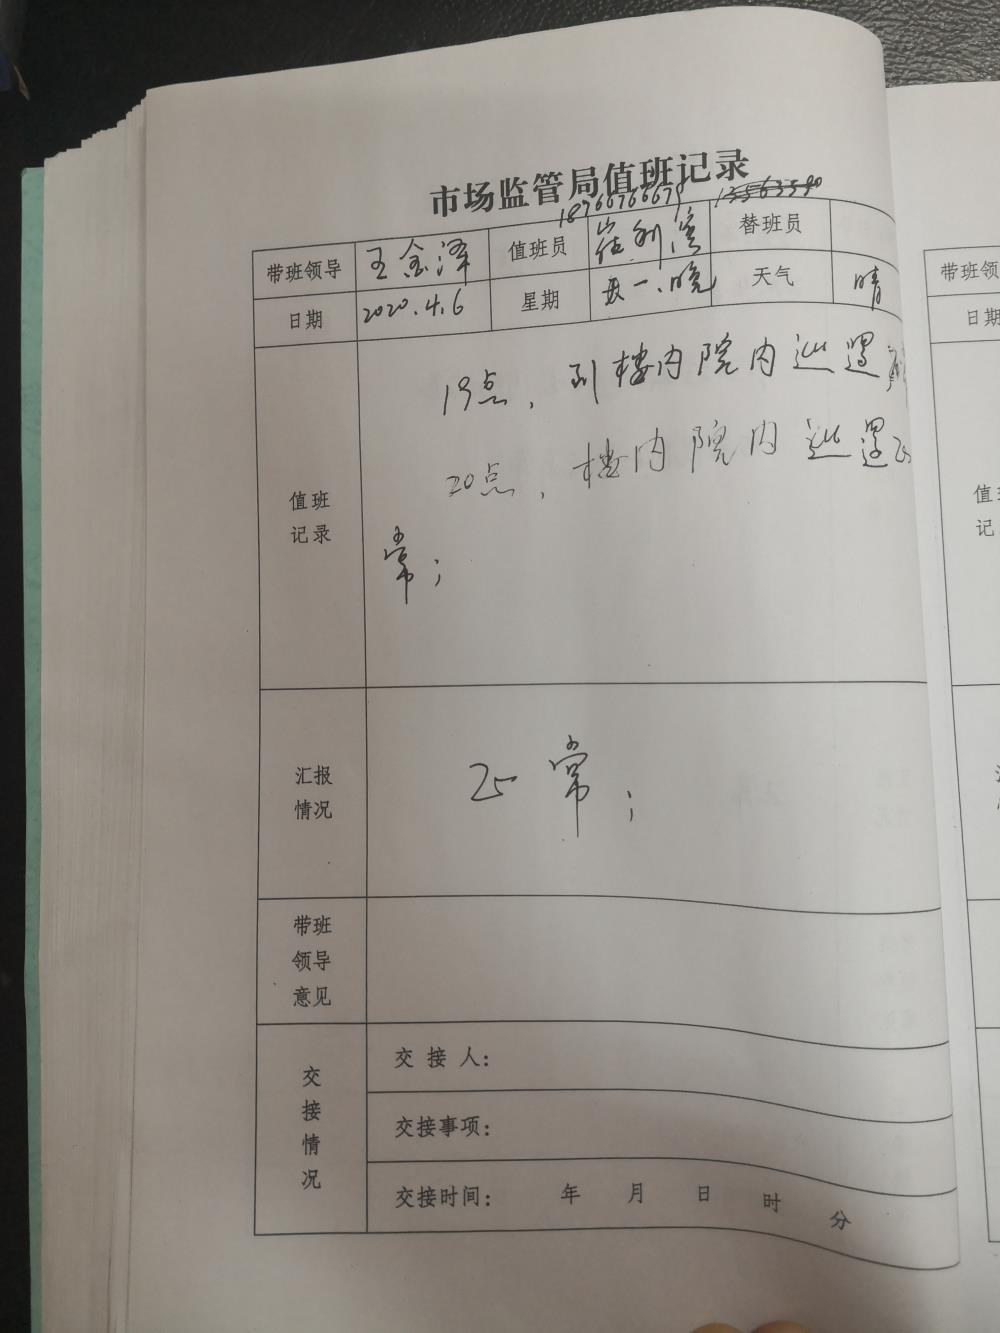 市场监管局值班记录
18766766679
带班领导 王金泽 值班员 崔利滨 替班员
日期 2020.4.6 星期 周一.晚 天气 晴
19点，到楼内院内巡逻
20点，楼内院内巡逻正
常；
值班
记录
汇报
情况
正常；
带班
领导
意见
交接情况
交接人：
交接事项：
交接时间： 年 月 日 时 分
带班领
日期
值
记